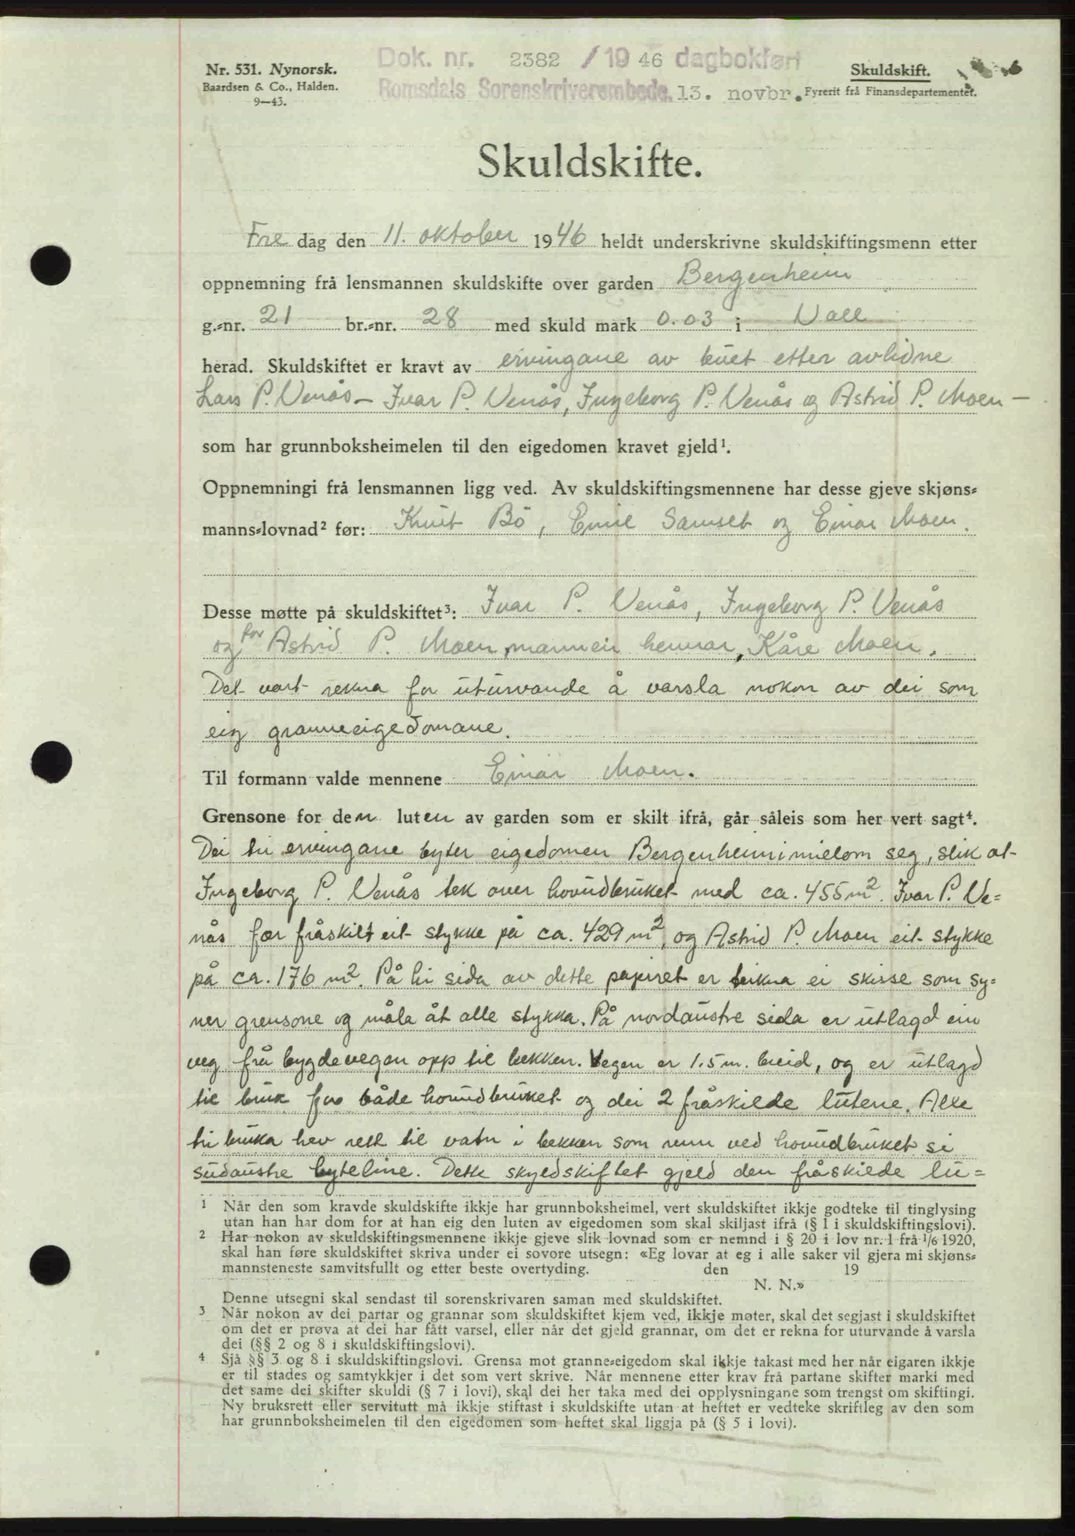 Nr. 531. Nynorsk.
Baardsen & Co., Halden.
9—43.
Dok. nr. 2382 /19 46 dagbokført
Romsdals Sorenskriverembede. 13. novbr.
Skuldskift.
Fyrerit frå Finansdepartementet.
Skuldskifte.
Fre dag den 11. oktober 1946 heldt underskrivne skuldskiftingsmenn etter
oppnemning frå lensmannen skuldskifte over garden Bergenheim
g.-nr. 21 br.-nr. 28 med skuld mark 0.03 i Voll
herad. Skuldskiftet er kravt av ervingane av buet etter avlidne
Lars P. Venås — Ivar P. Venås, Ingeborg P. Venås og Astrid P. Moen —
som har grunnboksheimelen til den eigedomen kravet gjeld¹.
Oppnemningi frå lensmannen ligg ved. Av skuldskiftingsmennene har desse gjeve skjøns-
manns-lovnad² før: Knut Bö, Emil Samset og Einar Moen.
Desse møtte på skuldskiftet³: Ivar P. Venås, Ingeborg P. Venås
og for Astrid P. Moen, mannen hennar, Kåre Moen.
Det vart rekna for uturvande å varsla nokon av dei som
eig granneeigedomane.
Til formann valde mennene Einar Moen.
Grensone for den luten av garden som er skilt ifrå, går såleis som her vert sagt⁴.
Dei tri ervingane byter eigedomen Bergenheim imielom seg, slik at
Ingeborg P. Venås tek over hovudbruket med ca. 455 m². Ivar P. Ve-
nås får fråskilt eit stykke på ca. 429 m², og Astrid P. Moen eit stykke
på ca. 176 m². På hi sida av dette papiret er teikna ei skisse som sy-
ner grensone og måla åt alle stykka. På nordaustre sida er utlagd ein
veg frå bygdevegen opp til bekken. Vegen er 1.5 m. breid, og er utlagd
til bruk for både hovudbruket og dei 2 fråskilde lutene. Alle
tri bruka hev rett til vatn i bekken som renn ved hovudbruket si
sudaustre byteline. Dette skyldskiftet gjeld den fråskilde lu-
¹ Når den som kravde skuldskifte ikkje har grunnboksheimel, vert skuldskiftet ikkje godteke til tinglysing
utan han har dom for at han eig den luten av eigedomen som skal skiljast ifrå (§ 1 i skuldskiftingslovi).
² Har nokon av skuldskiftingsmennene ikkje gjeve slik lovnad som er nemnd i § 20 i lov nr. 1 frå 1/6 1920,
skal han føre skuldskiftet skriva under ei sovore utsegn: «Eg lovar at eg i alle saker vil gjera mi skjøns-
mannsteneste samvitsfullt og etter beste overtyding. den 19
N. N.»
Denne utsegni skal sendast til sorenskrivaren saman med skuldskiftet.
³ Når nokon av dei partar og grannar som skuldskiftet kjem ved, ikkje møter, skal det segjast i skuldskiftet
om det er prøva at dei har fått varsel, eller når det gjeld grannar, om det er rekna for uturvande å varsla
dei (§§ 2 og 8 i skuldskiftingslovi).
⁴ Sjå §§ 3 og 8 i skuldskiftingslovi. Grensa mot granne-eigedom skal ikkje takast med her når eigaren ikkje
er til stades og samtykkjer i det som vert skrive. Når mennene etter krav frå partane skifter marki med
det same dei skifter skuldi (§ 7 i lovi), skal dei her taka med dei opplysningane som trengst om skiftingi.
Ny bruksrett eller servitutt må ikkje stiftast i skuldskifte utan at heftet er vedteke skriftleg av den som
har grunnboksheimelen til den eigedomen som heftet skal liggja på (§ 5 i lovi).